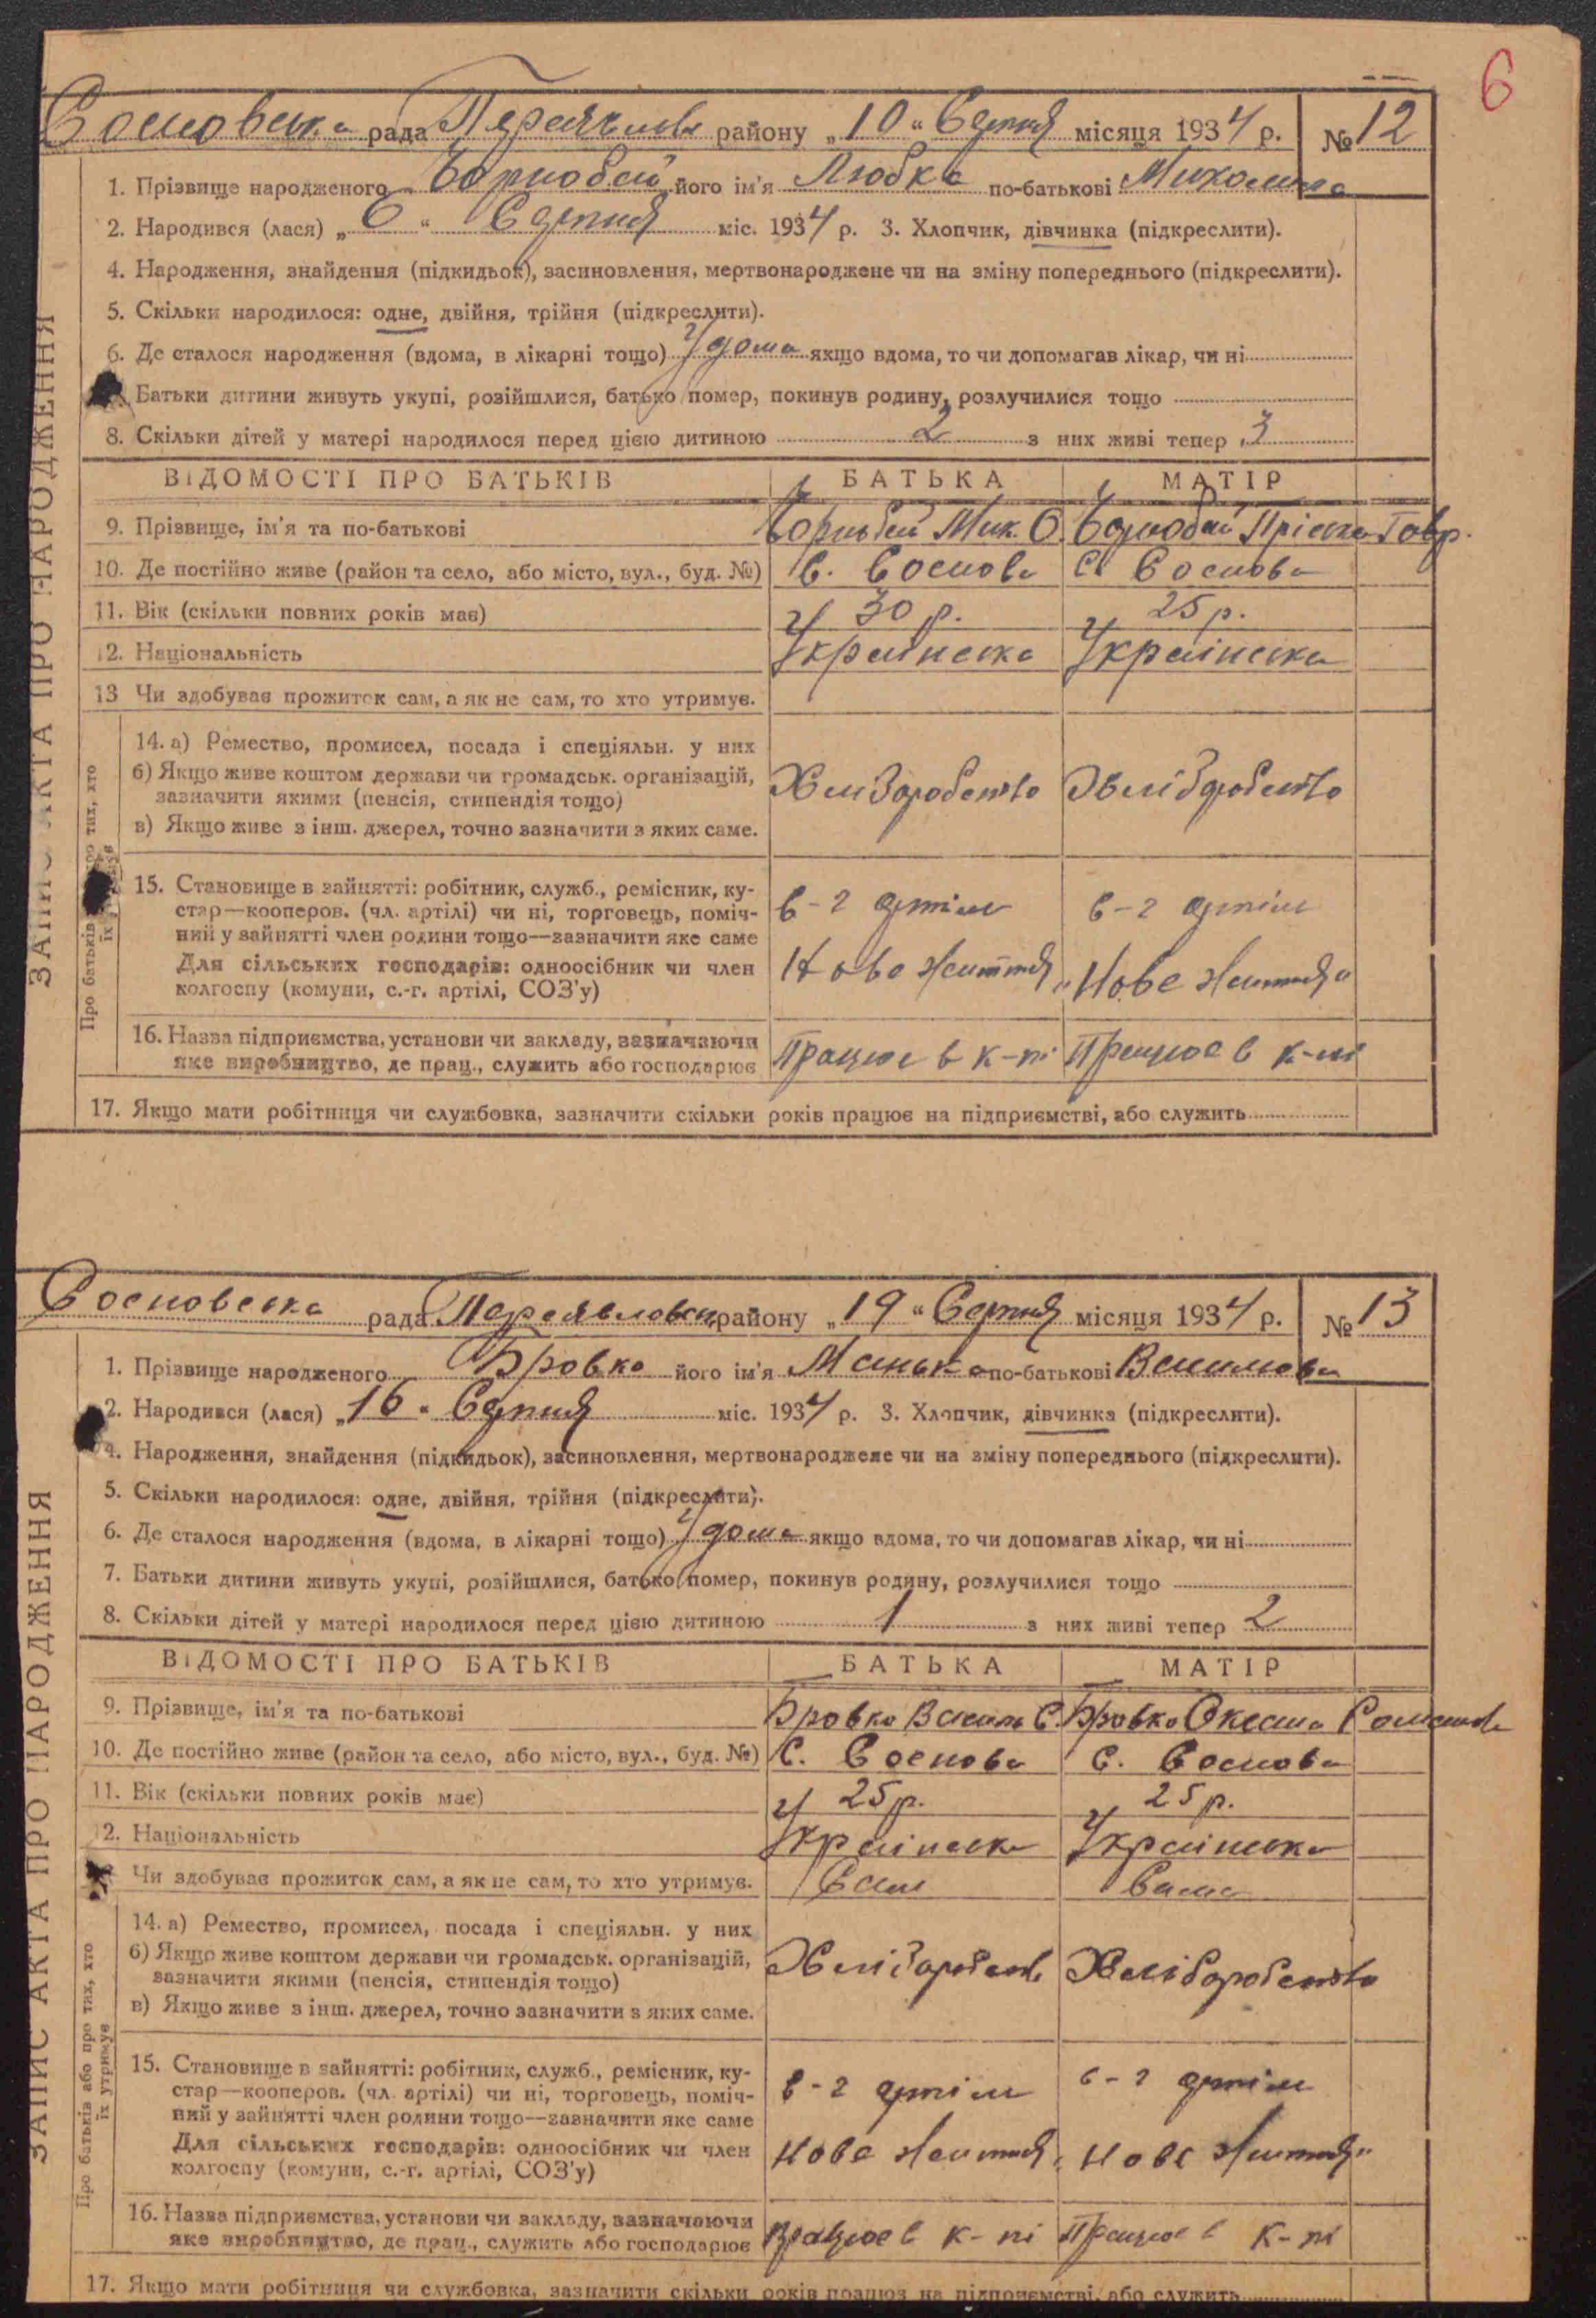 6
Сосновська рада Переяславс району „10" Серпня місяця 1934 р. № 12
1. Прізвище народженого Чорнобай його ім'я Любка по-батькові Миколаївна
2. Народився (лася) „6" Серпня міс. 1934 р. 3. Хлопчик, дівчинка (підкреслити).
4. Народження, знайдення (підкидьок), засиновлення, мертвонароджене чи на зміну попереднього (підкреслити).
5. Скільки народилося: одне, двійня, трійня (підкреслити).
6. Де сталося народження (вдома, в лікарні тощо) Удома якщо вдома, то чи допомагав лікар, чи ні
Батьки дитини живуть укупі, розійшлися, батько помер, покинув родину, розлучилися тощо
8. Скільки дітей у матері народилося перед цією дитиною 2 з них живі тепер 3
ВІДОМОСТІ ПРО БАТЬКІВ БАТЬКА МАТІР
9. Прізвище, ім'я та по-батькові Чорнобай Мик. О. Чорнобай Пріська Гавр.
10. Де постійно живе (район та село, або місто, вул., буд. №) С. Соснова С. Соснова
11. Вік (скільки повних років має) 30 р. 25 р.
12. Національність Українська Українська
13 Чи здобуває прожиток сам, а як не сам, то хто утримує.
14. а) Ремество, промисел, посада і спеціяльн. у них
б) Якщо живе коштом держави чи громадськ. організацій,
зазначити якими (пенсія, стипендія тощо)
Хліборобство Хліборобство
в) Якщо живе з інш. джерел, точно зазначити з яких саме.
15. Становище в зайнятті: робітник, служб., ремісник, ку-
стар—кооперов. (чл. артілі) чи ні, торговець, поміч-
с-г артіль с-г артіль
ний у зайнятті член родини тощо—зазначити яке саме
Для сільських господарів: одноосібник чи член
Нове життя „Нове життя"
колгоспу (комуни, с.-г. артілі, СОЗ'у)
16. Назва підприємства, установи чи закладу, зазначаючи
яке виробництво, де прац., служить або господарює
Працює в к-пі Працює в к-пі
17. Якщо мати робітниця чи службовка, зазначити скільки років працює на підприємстві, або служить
ЗАПИС АКТА ПРО НАРОДЖЕННЯ
Про батьків або про тих, хто
їх утримує
Сосновська рада Переяславськ району „19" Серпня місяця 1934 р. № 13
1. Прізвище народженого Бровко його ім'я Манька по-батькові Василівна
2. Народився (лася) „16" Серпня міс. 1934 р. 3. Хлопчик, дівчинка (підкреслити).
4. Народження, знайдення (підкидьок), засиновлення, мертвонароджене чи на зміну попереднього (підкреслити).
5. Скільки народилося: одне, двійня, трійня (підкреслити).
6. Де сталося народження (вдома, в лікарні тощо) Удома якщо вдома, то чи допомагав лікар, чи ні
7. Батьки дитини живуть укупі, розійшлися, батько помер, покинув родину, розлучилися тощо
8. Скільки дітей у матері народилося перед цією дитиною 1 з них живі тепер 2
ВІДОМОСТІ ПРО БАТЬКІВ БАТЬКА МАТІР
9. Прізвище, ім'я та по-батькові Бровко Василь С. Бровко Оксана Романов
10. Де постійно живе (район та село, або місто, вул., буд. №) С. Соснова С. Соснова
11. Вік (скільки повних років має) 25 р. 25 р.
12. Національність Українська Українська
Чи здобуває прожиток сам, а як не сам, то хто утримує. Сам Сама
14. а) Ремество, промисел, посада і спеціяльн. у них
б) Якщо живе коштом держави чи громадськ. організацій,
Хліборобств Хліборобство
зазначити якими (пенсія, стипендія тощо)
в) Якщо живе з інш. джерел, точно зазначити з яких саме.
15. Становище в зайнятті: робітник, служб., ремісник, ку-
стар—кооперов. (чл. артілі) чи ні, торговець, поміч-
с-г артіль с-г артіль
ний у зайнятті член родини тощо—зазначити яке саме
Для сільських господарів: одноосібник чи член
Нове життя „Нове життя"
колгоспу (комуни, с.-г. артілі, СОЗ'у)
16. Назва підприємства, установи чи закладу, зазначаючи
яке виробництво, де прац., служить або господарює
Працює в к-пі Працює в к-пі
17. Якщо мати робітниця чи службовка, зазначити скільки років працює на підприємстві, або служить
ЗАПИС АКТА ПРО НАРОДЖЕННЯ
Про батьків або про тих, хто
їх утримує